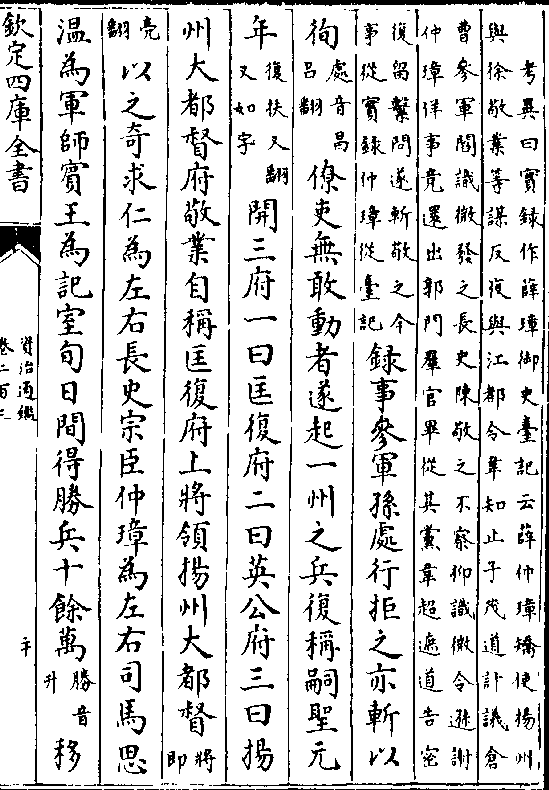 考異曰實録作薛璋御史臺記云薛仲璋矯使揚州
與徐敬業等謀反復與江都令韋知止子茂道計議倉
曹參軍閻識微發之長史陳敬之不察仰識微令遜謝
仲璋佯事竟還出郭門羣官畢從其黨韋超遮道告密
復留繫問遂斬敬之今事從實録仲璋從臺記録事參軍孫處行拒之亦斬以
徇處音昌吕翻僚吏無敢動者遂起一州之兵復稱嗣聖元
年復扶又翻又如字開三府一曰匡復府二曰英公府三曰揚
州大都督府敬業自稱匡復府上將領揚州大都督將即
亮翻以之奇求仁為左右長史宗臣仲璋為左右司馬思
温為軍師賓王為記室旬日間得勝兵十餘萬勝音升移
欽定四庫全書
資治通鑑
卷二百三